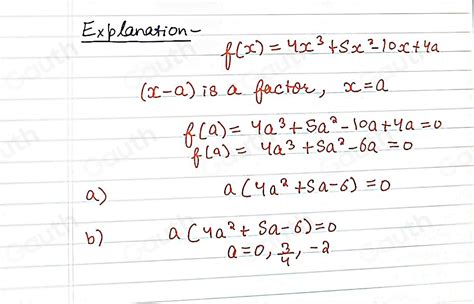 Explanation-
f(x) = 4x³+5x²-10x+4a
(x-a) is a factor, x=a
f(a) = 4a³+5a²-10a+4a=0
f(a) = 4a³+5a²-6a=0
a) a(4a²+5a-6)=0
b) a(4a²+5a-6)=0
a=0, 3/4, -2